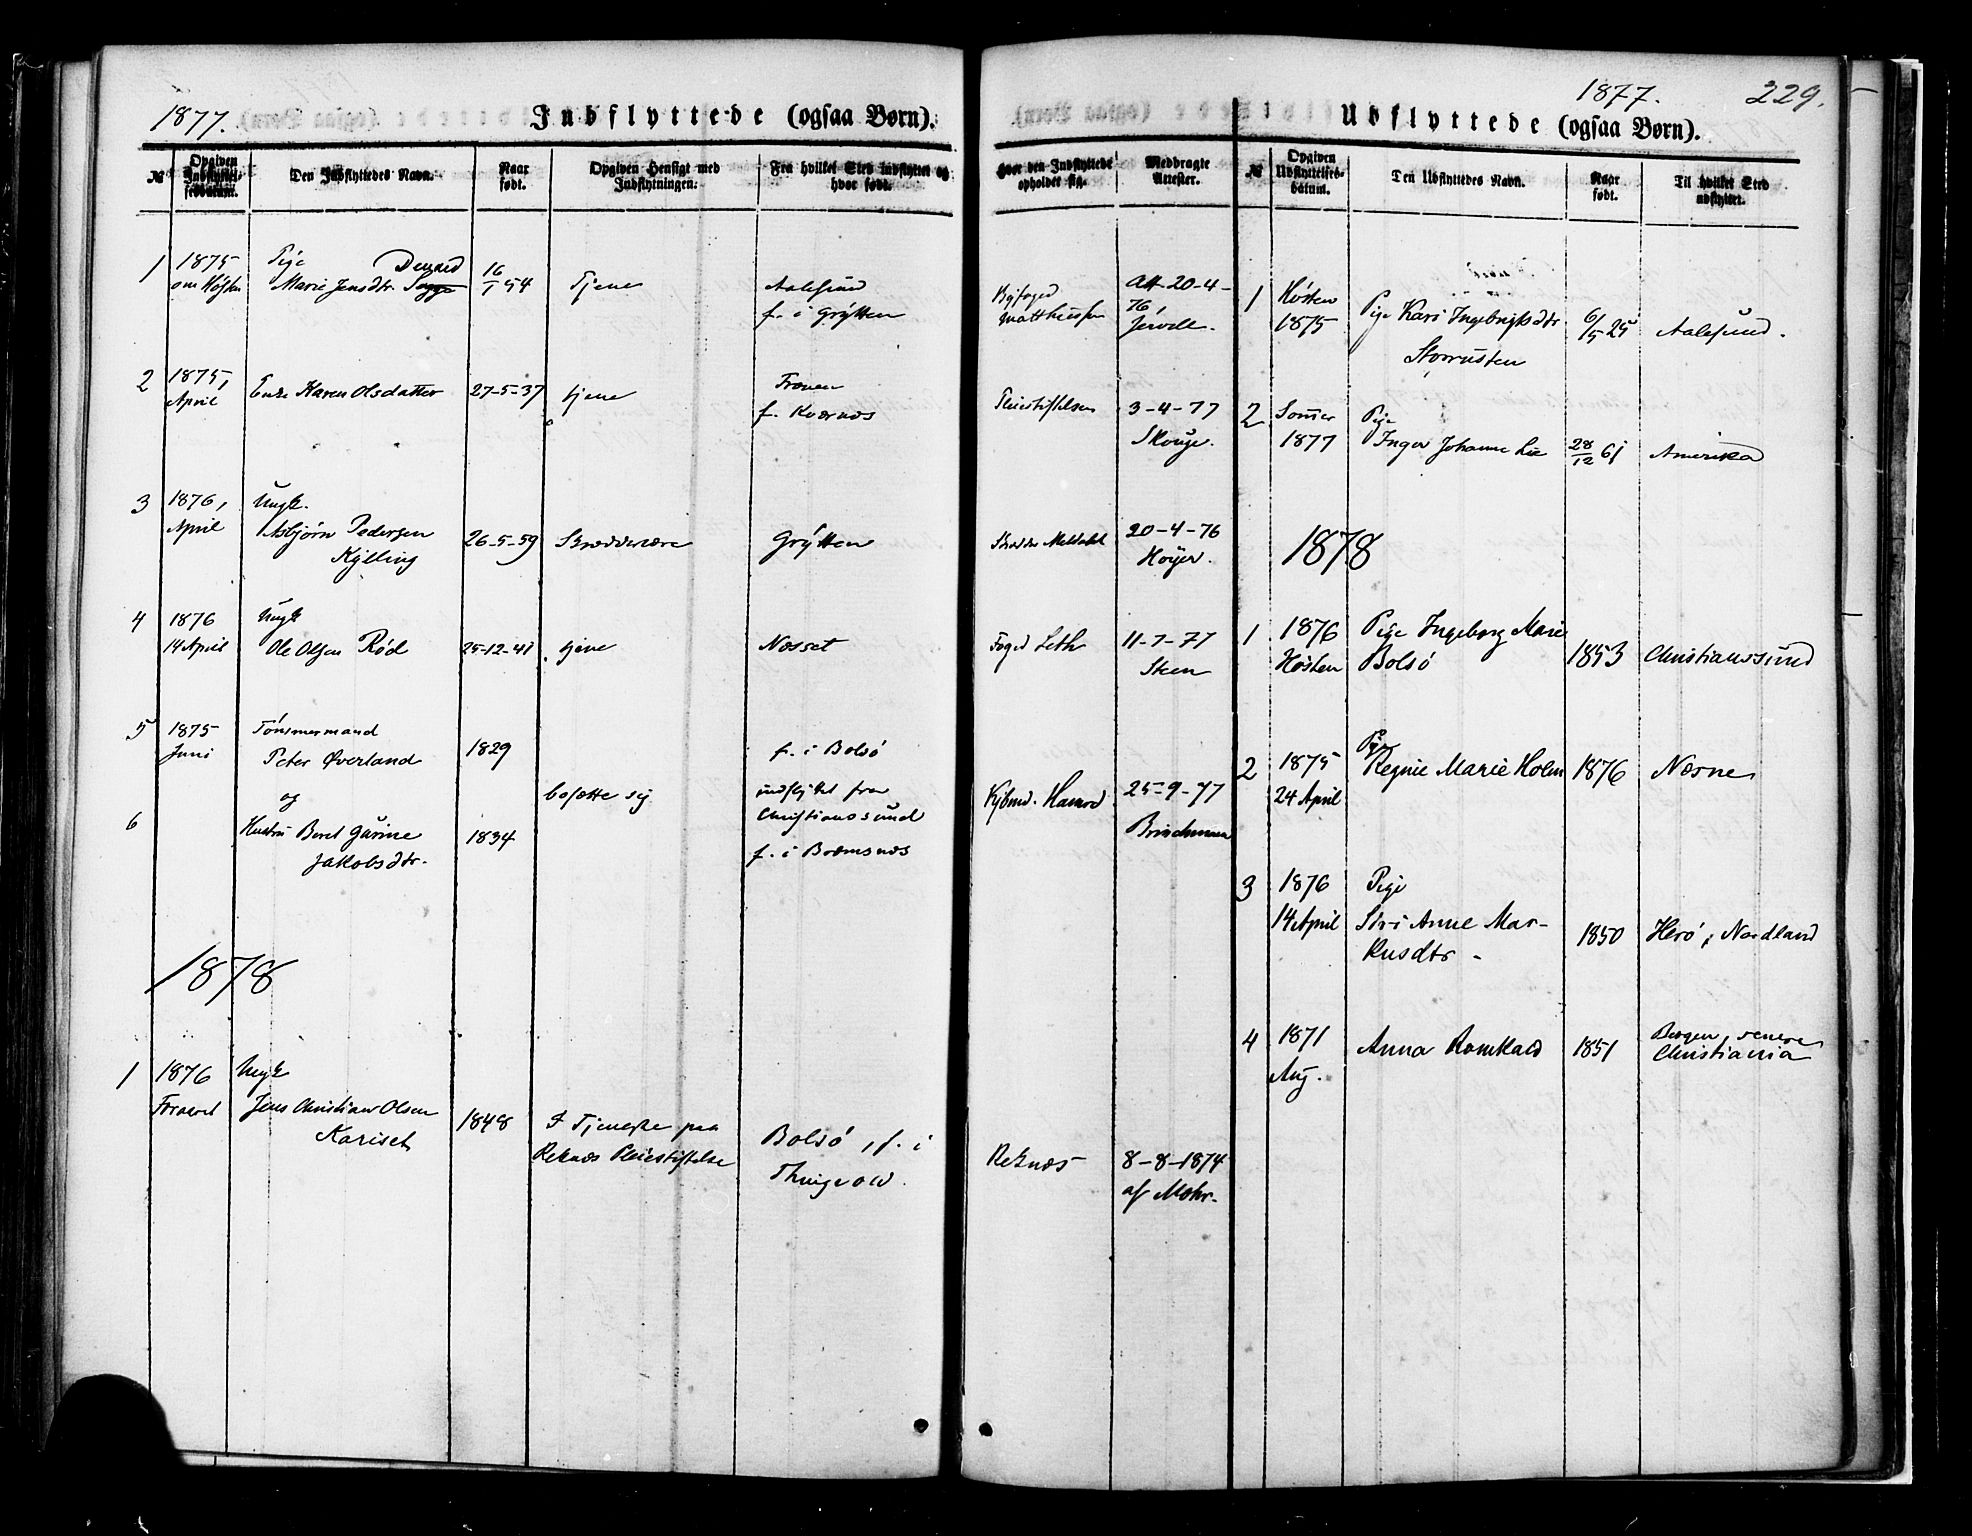 1877.
Indflyttede (ogsaa Børn).
№
Opgiven Indflyttelsesdatum.
Den Indflyttedes Navn.
Naar født.
Opgiven Hensigt med Indflytningen.
Fra hvilket Sted indflyttet og hvor født.
Hvor den Indflyttede opholder sig.
Medbragte Attester.
1
1875 om Høsten
Pige
Marie Jensdtr.
16/1 54
Tjene
Aalesund
f. i Grytten
Byfoged
Att. 20-4-76,
2
1875, April
Enke Karen Olsdatter
27-5-37
tjene
Frænen
f. Kværnæs
Pleiestiftelsen
3-4-77
Skouge.
3
1876, April
Ungk.
Asbjørn Pedersen
Kylling
26-5-59
Skræddenære
Grytten
20-4-76
Høyer.
4
1876
14 April
Ungk
Ole Olsen Rød
25-12-41
tjene
Nesset
Foged Leth
11-7-77
Steen
5
1875
Juni
Tømmermand
Peter Øverland
1829
f. i Bolsø
og
bosætte sig
indflyttet fra
Christianssund
25-9-77
6
Hustru Beret Gurine
Jakobsdtr.
1834
f. i Bremsnæs
1878
1
1876
Foraaret
Ungk
Jens Christian Olsen
Kariset
1848
I Tjeneste paa
Reknæs Pleiestiftelse
Bolsø, f. i
Thingvold.
Reknæs
8-8-1874
af Mohr.
1877.
229.
Udflyttede (ogsaa Børn).
№
Opgiven Udflyttelsesdatum.
Den Udflyttedes Navn.
Naar født.
Til hvilket Sted udflyttet.
1
Høsten
1875
Pige Kari Ingebrigtsdtr.
6/5 25
Aalesund.
2
Sommer
1877
Pige
Inger Johanne Lie
28/12 61
Amerika
1878
1
1876
Høsten
Pige Ingeborg Marie
Bolsø
1853
Christianssund
2
1875
24 April
Pige
Regine Marie Holm
1876
Næsne
3
1876
14 April
Pige
Siri Anne Mar-
kusdtr.
1850
Herø, Nordland
4
1871
Aug.
Anna
1851
Bergen, senere
Christiania